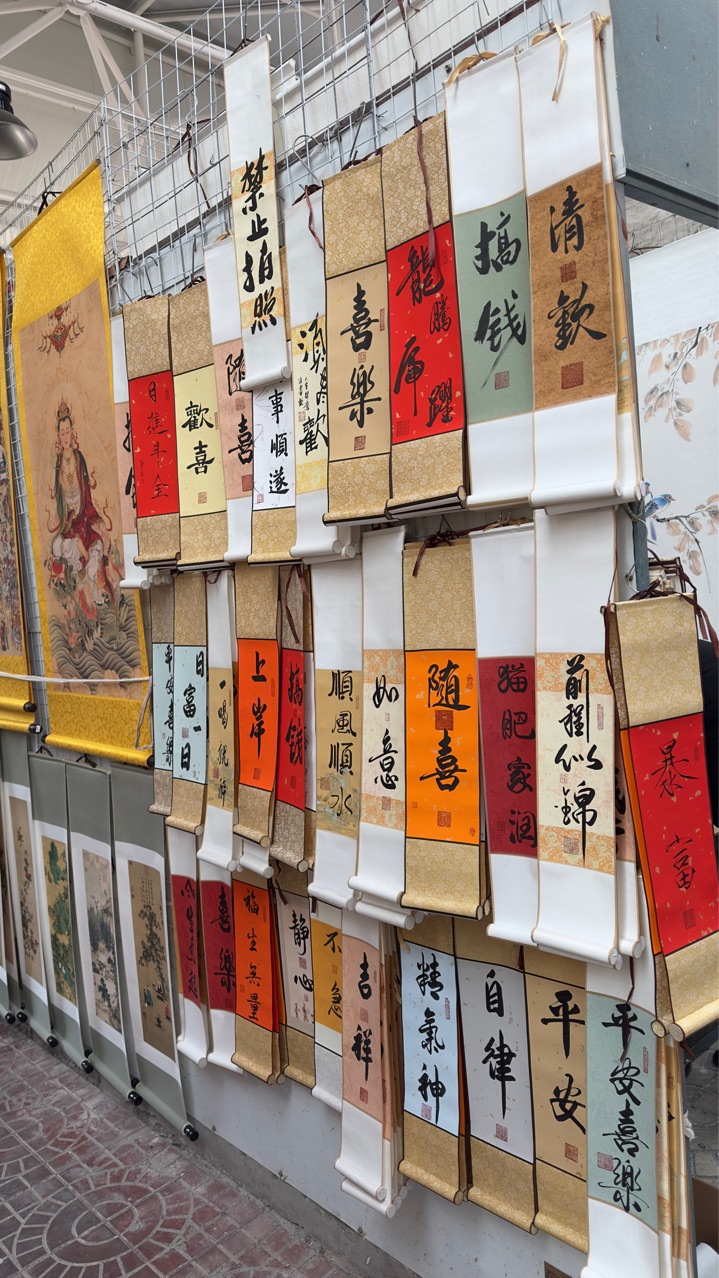 禁止拍照
日進斗金
歡喜
隨喜
事順遂
須盡歡
喜樂
龍騰
虎躍
搞钱
清歡
平安喜樂
日富一日
一喝就好
上岸
搞钱
順風順水
如意
隨喜
猫肥家润
前程似錦
暴富
喜樂
福生無量
静心
不急
吉祥
精氣神
自律
平安
平安喜樂